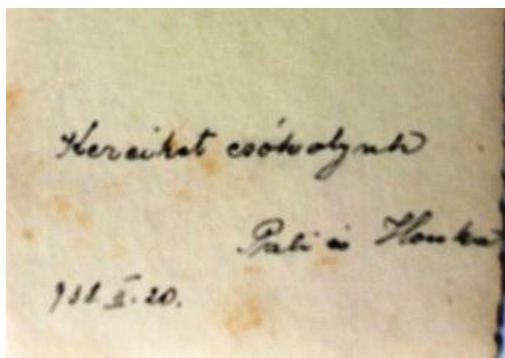 Kezeiket csókolyuk
Pali és Ilonka
938. II. 20.